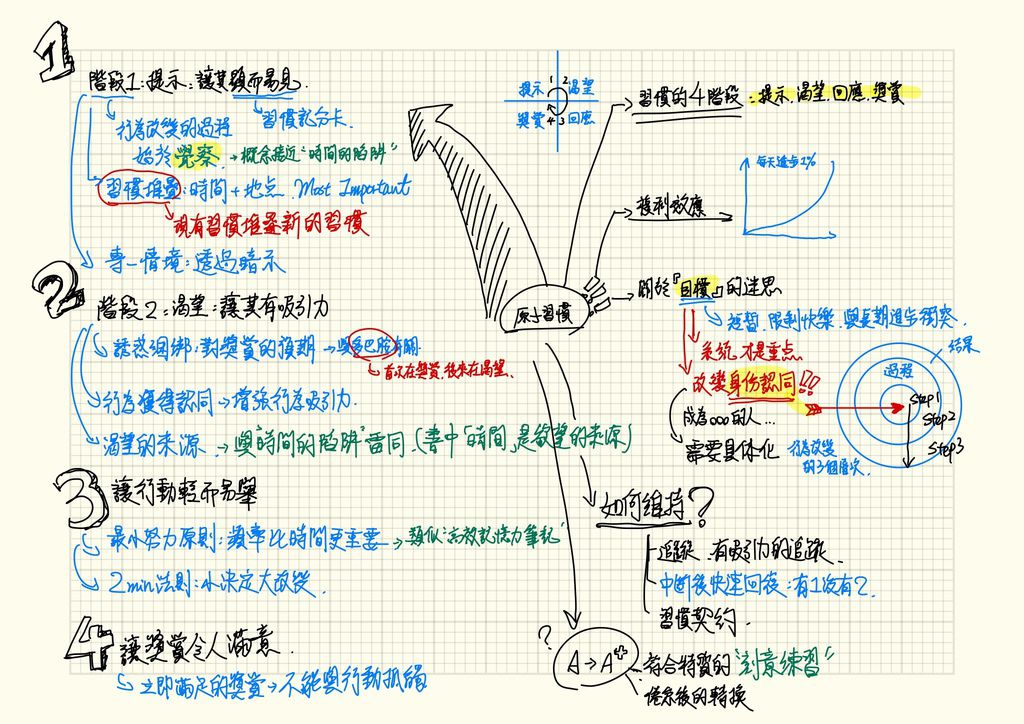 1
階段1:提示:讓其顯而易見
行為改變的過程
習慣記分卡.
始於覺察→概念接近"時間的陷阱"
習慣堆疊:時間+地点. Most Important
→現有習慣堆疊新的習慣
專一情境:透過暗示
2
階段2:渴望:讓其有吸引力
誘惑綑綁:對獎賞的預期→與多巴胺有關
首次在獎賞,後來在渴望.
行為獲得認同→增強行為吸引力.
渴望的來源→與"時間的陷阱"雷同.(書中「時間」是欲望的來源)
3
讓行動輕而易舉
最小努力原則:頻率比時間更重要→類似"高效記憶力筆記"
2min法則:小決定大改變.
4
讓獎賞令人滿意.
立即滿足的獎賞→不能與行動抵觸
提示 1 2 渴望
獎賞 4 3 回應
原子習慣
習慣的4階段:提示.渴望.回應.獎賞
複利效應
每天進步1%
關於『目標』的迷思
短暫.限制快樂.與長期進步衝突.
系統才是重点.
改變身份認同!!
成為ooo的人...
需要具体化
行為改變的3個層次.
結果
過程
Step1
Step2
Step3
如何維持?
追蹤.有吸引力的追蹤.
中斷後快速回復:有1沒有2.
習慣契約.
?
A→A+
符合特質的"刻意練習"
倦怠後的轉換